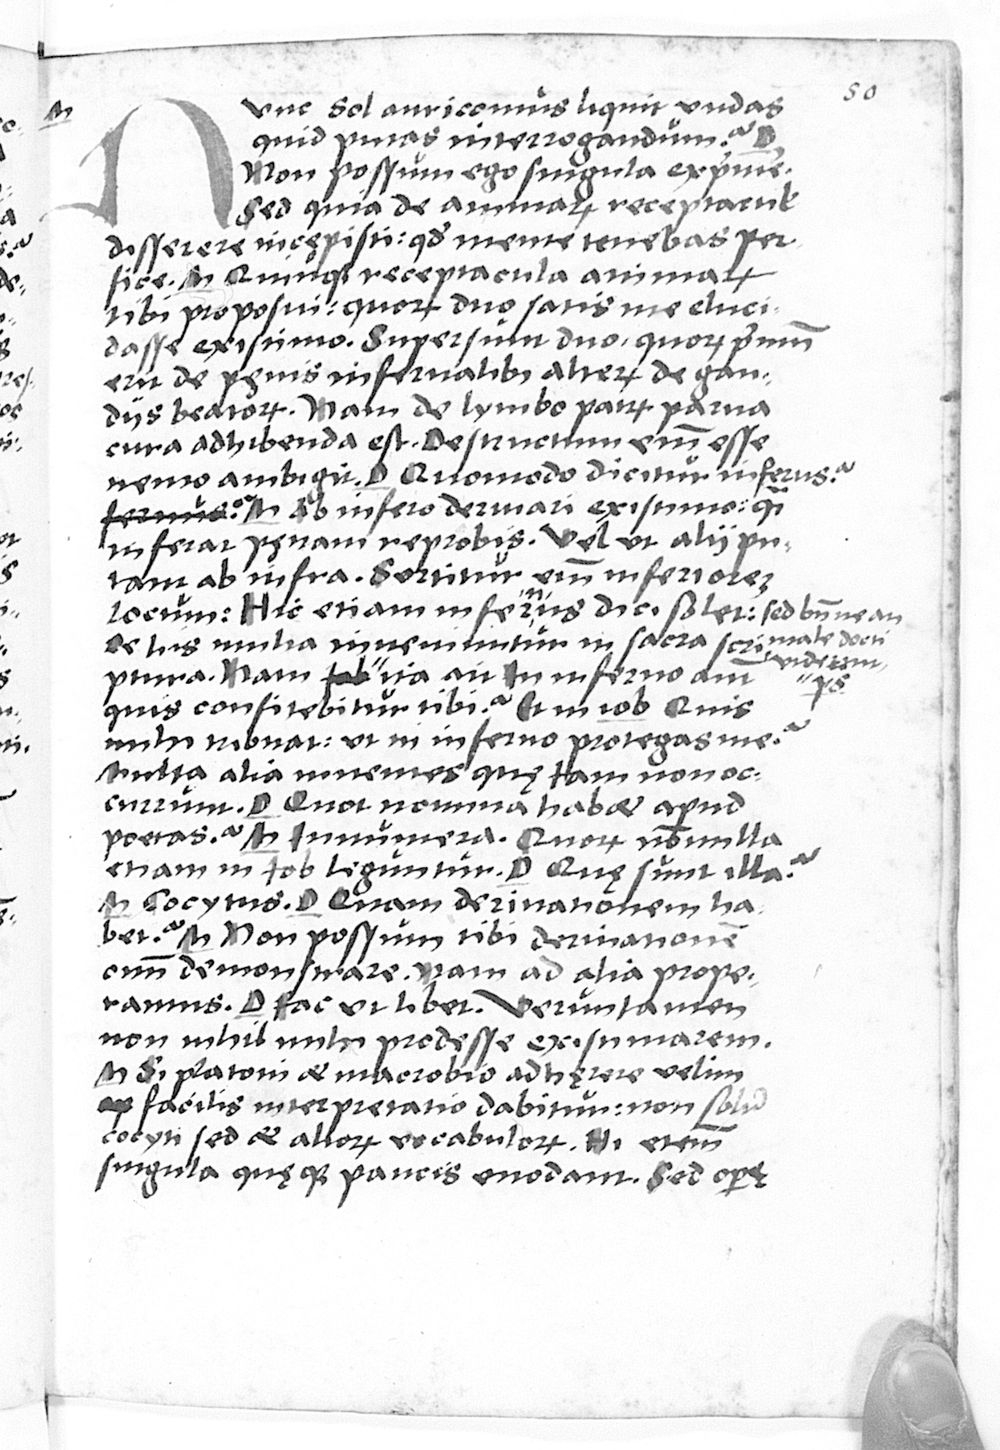 50
M Nunc sol auricomus liquit undas
quid putas interrogandum? D
Non possum ego singula exprime.
Sed quia de animarꝝ receptaculis
disserere incępisti: qď mente tenebas per
fice. M Quinqꝫ receptacula animarꝝ
tibi proposui: quorꝝ duo satis me eluci.
dasse existimo. Supersunt duo. quorꝝ primū
erit de pęnis infernalibꝰ alterꝝ de gau,
dijs beatorꝝ. Nam de lymbo patrꝝ parua
cura adhibenda est. Destructum enī esse
nemo ambigit. D Quomodo dicitur inferus?
fernus? M Ab infero deriuari existimo: qꝫ
inferat pęnam reprobis. Vel ut alij pu,
tant ab infra. Sortitur enī inferiorē
locum: Hic etiam infernus dici solet: sed bn̄ ne an
De his multa inueniuntur in sacra scri, male docti
ptura. Nam Iob ita ait In inferno autē uiderint
ps
quis confitebitur tibi? Et in iob Quis
mihi tribuat: ut in inferno protegas me?
Multa alia inuenies quę tam non oc:
currunt. D Quot nomina habet apud
poetas? M Innumera. Quorꝝ nōnulla
etiam in Iob leguntur. D Quę sunt illa?
M Cocytus. D Quam deriuationem ha.
bet? M Non possum tibi deriuationē
eius demonstrare. Nam ad alia prope.
ramus. D Fac ut libet. Veruntamen
non nihil mihi prodesse existimarem.
M Si platoni et macrobio adhęrere uelim
facilis interpretatio dabitur: non solū
cocyti sed et aliorꝝ uocabulorꝝ. Hi etenī
singula quęqꝫ paucis enodant. Sed opę